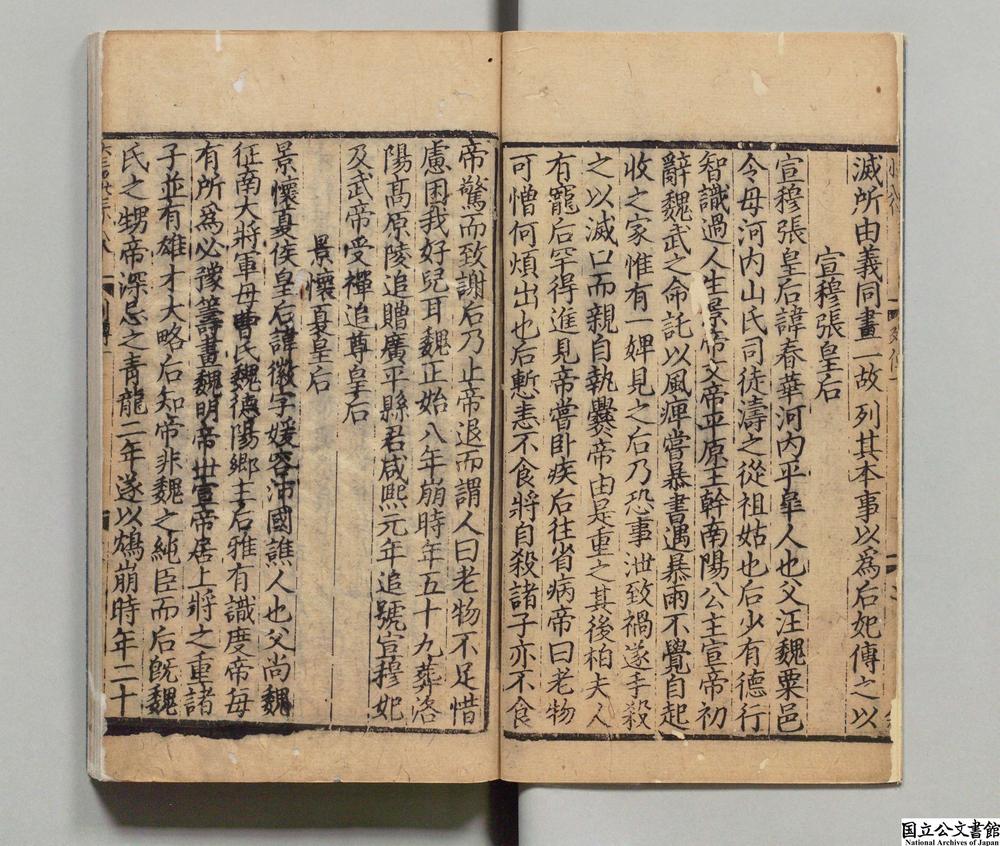 滅所由義同畫一故列其本事以爲后妃傳之以
宣穆張皇后
宣穆張皇后諱春華河内平皐人也父汪魏粟邑
令母河内山氏司徒濤之從祖姑也后少有德行
智識過人生景帝文帝平原王幹南陽公主宣帝初
辭魏武之命託以風痺嘗暴書遇暴雨不覺自起
收之家惟有一婢見之后乃恐事泄致禍遂手殺
之以滅口而親自執爨帝由是重之其後柏夫人
有寵后罕得進見帝嘗卧疾后往省病帝曰老物
可憎何煩出也后慙恚不食將自殺諸子亦不食
帝驚而致謝后乃止帝退而謂人曰老物不足惜
慮困我好兒耳魏正始八年崩時年五十九葬洛
陽髙原陵追贈廣平縣君咸熙元年追號宣穆妃
及武帝受禪追尊皇后
景懷夏皇后
景懷夏侯皇后諱徽字媛容沛國譙人也父尚魏
征南大將軍母曹氏魏德陽鄉主后雅有識度帝毎
有所爲必豫籌畫魏明帝世宣帝居上將之重諸
子並有雄才大略后知帝非魏之純臣而后旣魏
氏之甥帝深忌之青龍二年遂以鴆崩時年二十
国立公文書館
National Archives of Japan